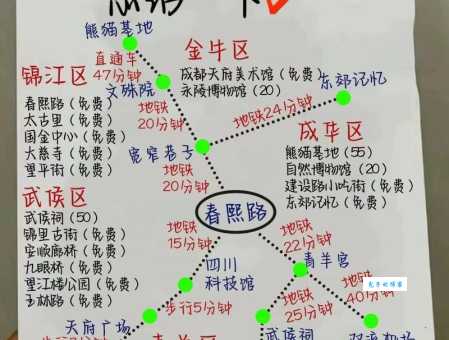 熊猫基地
直通车
47分钟
金牛区
成都天府美术馆(免费)
永陵博物馆(20)
锦江区
春熙路(免费)
太古里(免费)
国金中心(免费)
大慈寺(免费)
望平街(免费)
文殊院
地铁
20分钟
地铁24分钟
东郊记忆
宽窄巷子
成华区
熊猫基地(55)
自然博物馆(20)
建设路小吃街(免费)
东郊记忆(免费)
地铁
20分钟
春熙路
武侯区
武侯祠(50)
锦里古街(免费)
安顺廊桥(免费)
九眼桥(免费)
望江楼公园(免费)
玉林路(免费)
地铁
15分钟
地铁
22分钟
四川
科技馆
青羊宫
步行5分钟
天府广场
地铁
25分钟
武侯祠
地铁
40分钟
双流机场